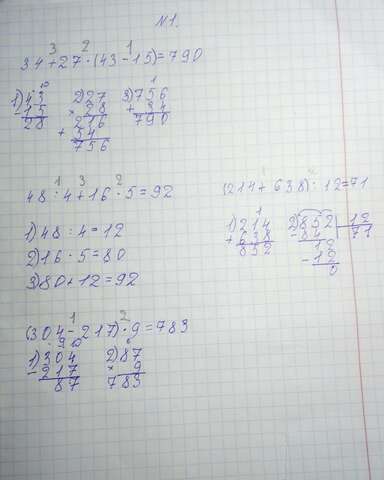 №1.
3 2 1
34+27·(43-15)=790
1)43 2)27 3)756
-15 ×28 +34
28 216 790
+54
756
1 3 2
48:4+16·5=92
1)48:4=12
2)16·5=80
3)80+12=92
(214+638):12=71
1)214 2)852|12
+638 -84 71
852 12
-12
0
1 2
(304-217)·9=783
1)304 2)87
-217 ×9
87 783